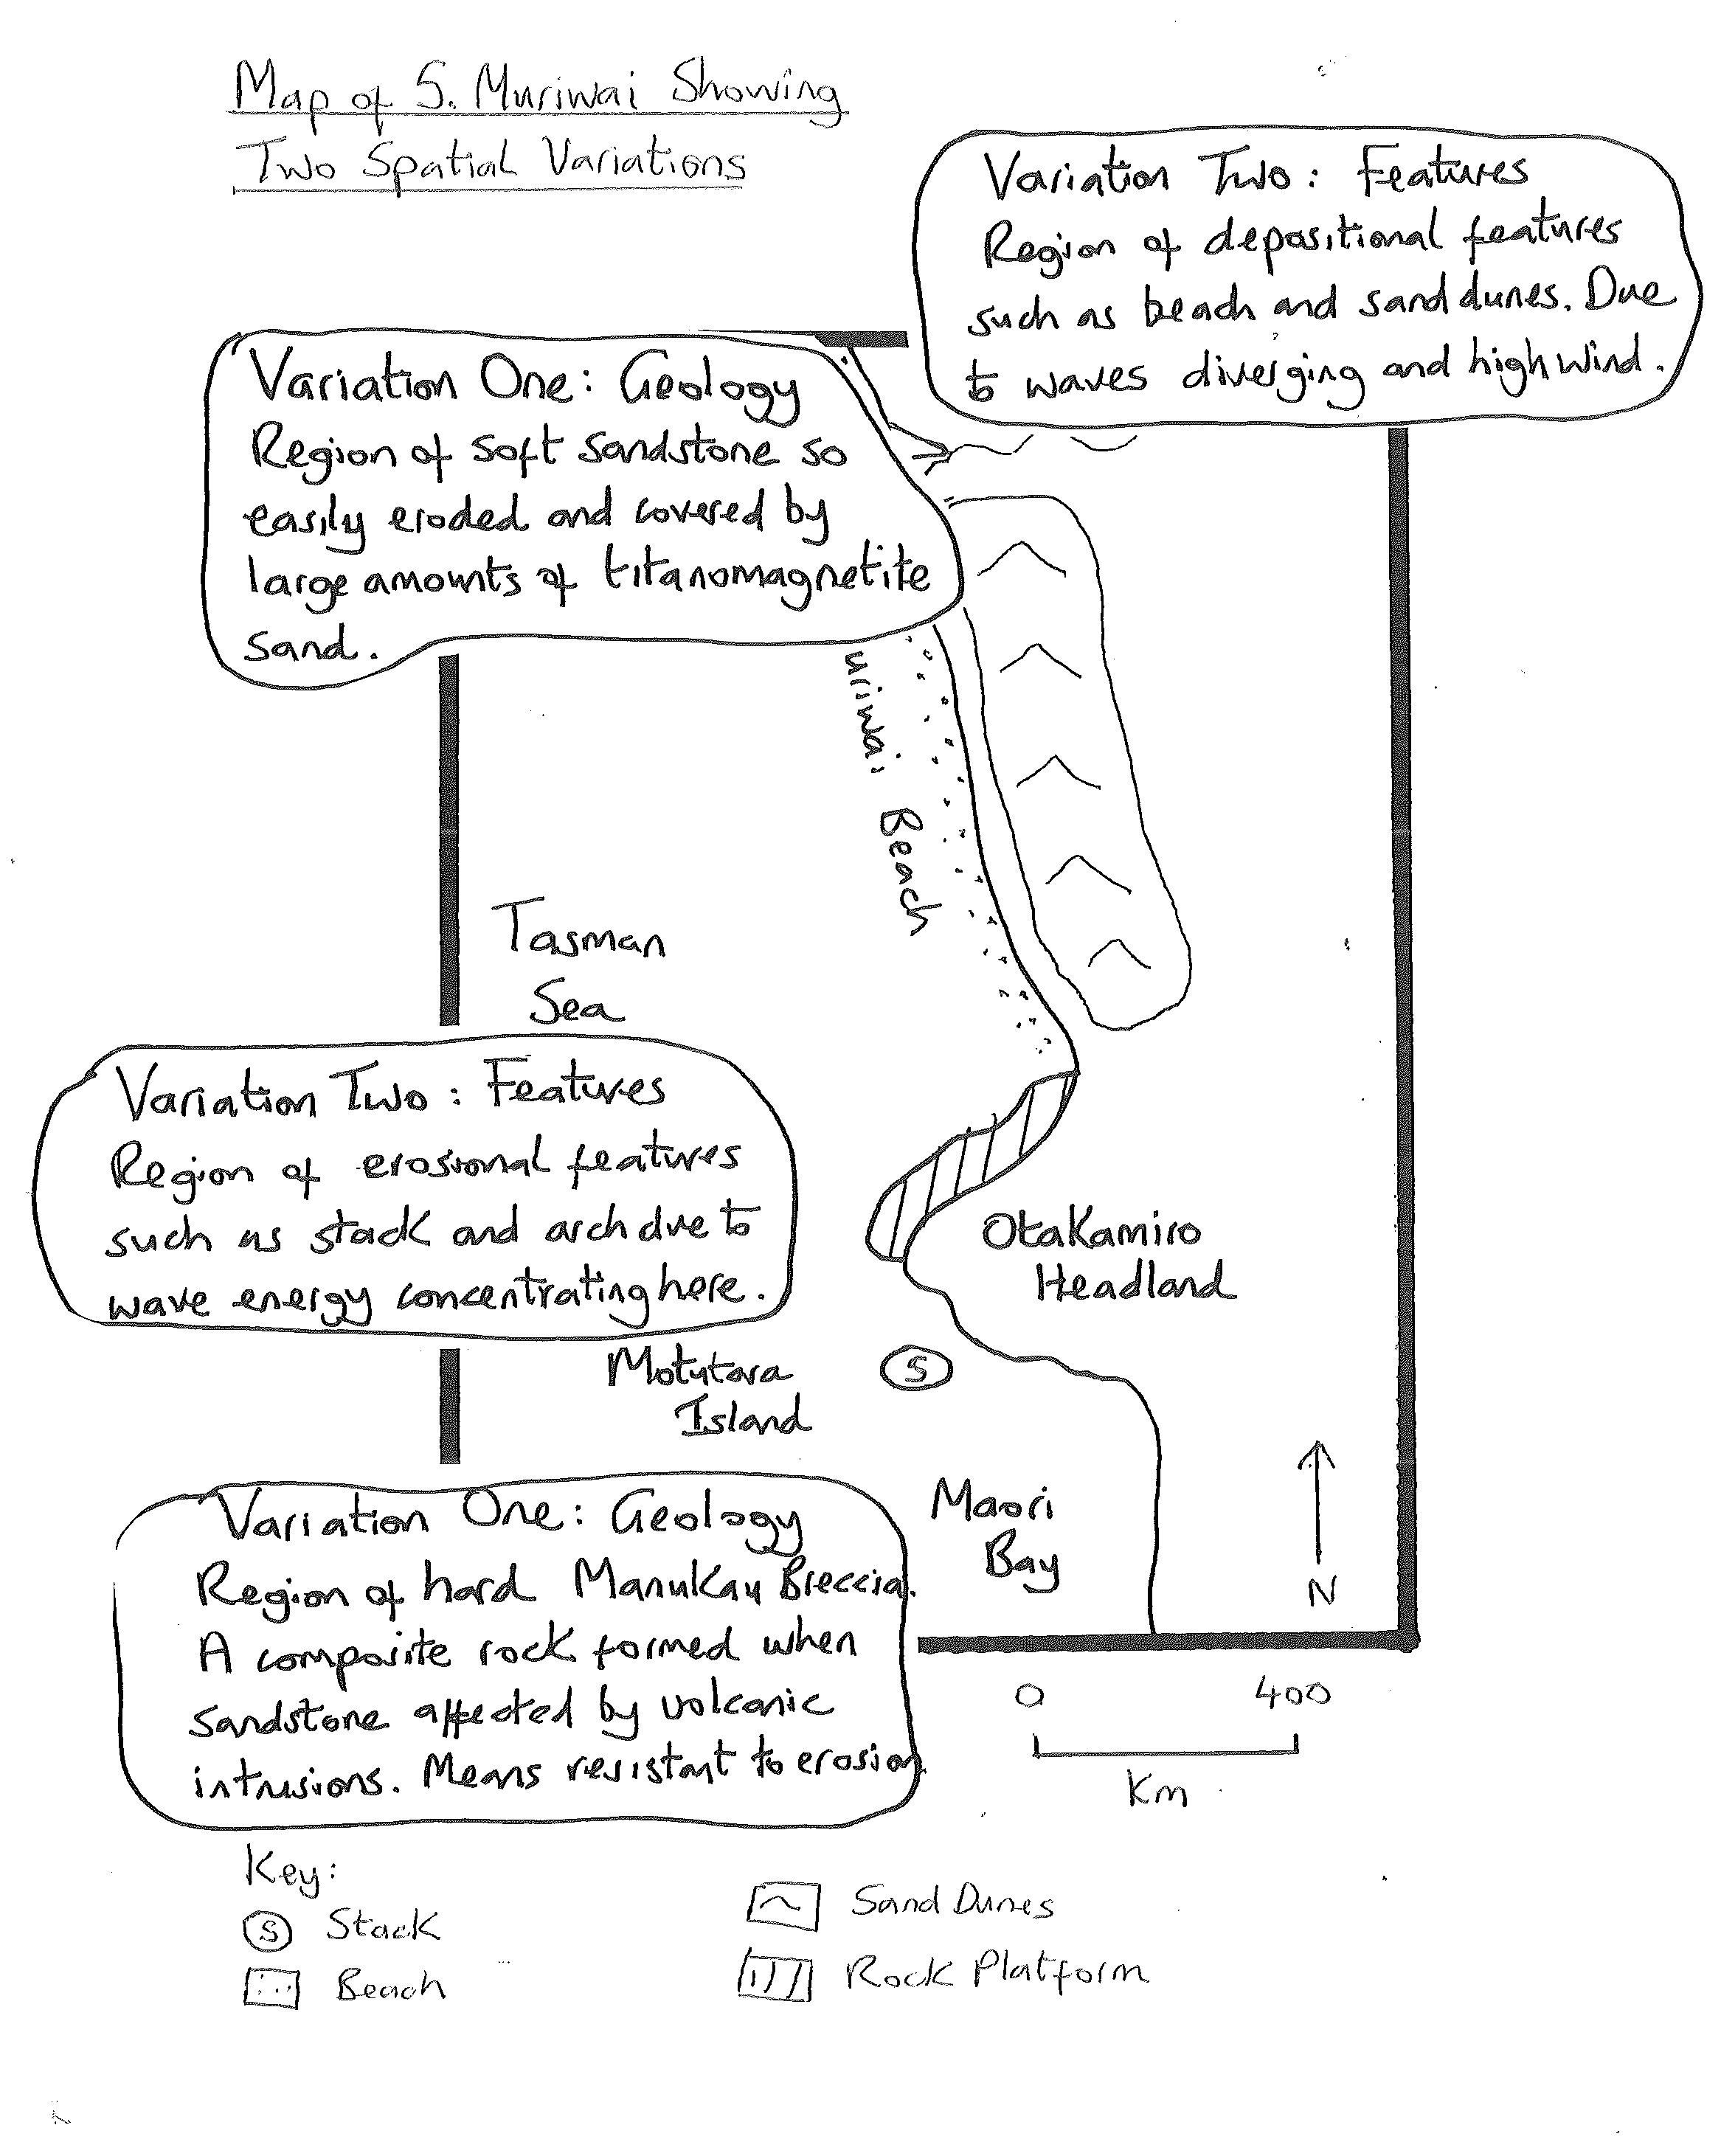 Map of S. Muriwai Showing
Two Spatial Variations
Variation Two: Features
Region of depositional features
such as beach and sand dunes. Due
to waves diverging and high wind.
Variation One: Geology
Region of soft sandstone so
easily eroded and covered by
large amounts of titanomagnetite
sand.
uriwai Beach
Tasman
Sea
Variation Two: Features
Region of erosional features
such as stack and arch due to
wave energy concentrating here.
Otakamiro
Headland
Motutara
Island
S
Maori
Bay
N
Variation One: Geology
Region of hard Manukau Breccia.
A composite rock formed when
sandstone affected by volcanic
intrusions. Means resistant to erosion.
0 400
Km
Key:
S Stack
Beach
Sand Dunes
Rock Platform